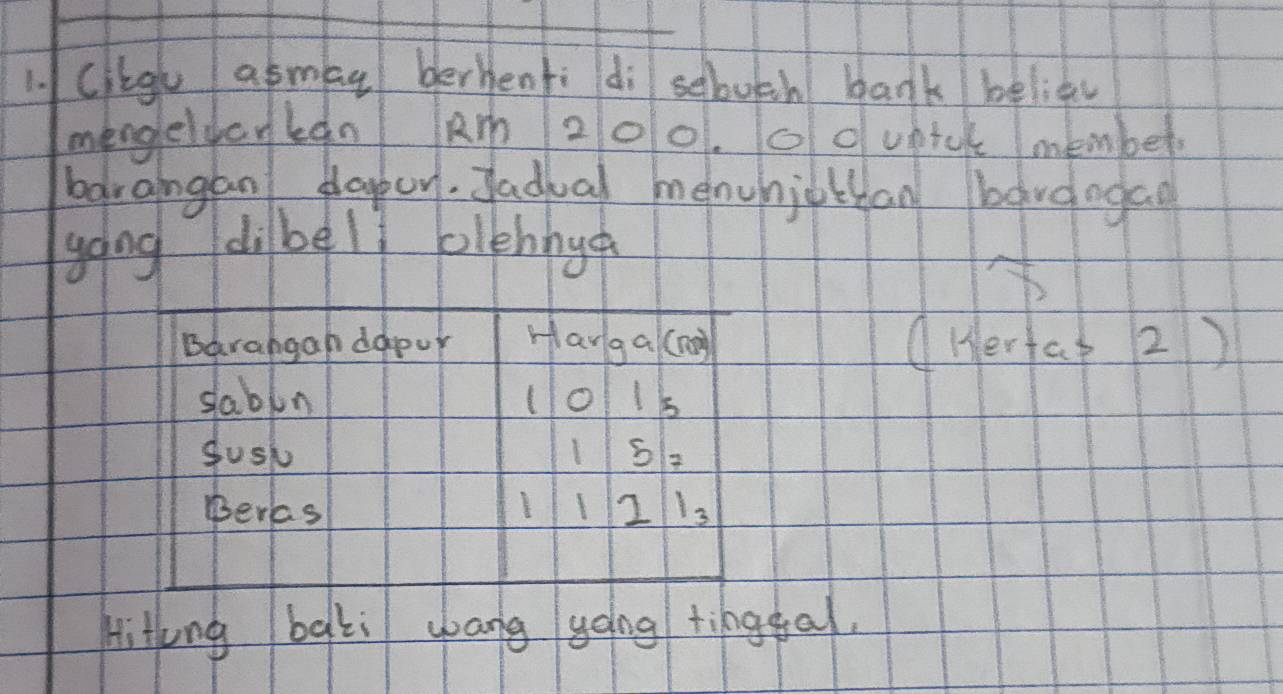 1. Cikgu asmay berhenti di sebuah bank beliau
mengeluarkan RM 200.00 untuk membeli
barangan dapur. Jadual menunjukkan barangan
yang dibeli olehnya
Barangan dapur Harga (RM)
(Kertas 2)
Sabun 101₅
Susu 15₇
Beras 1121₃
Hitung baki wang yang tinggal.